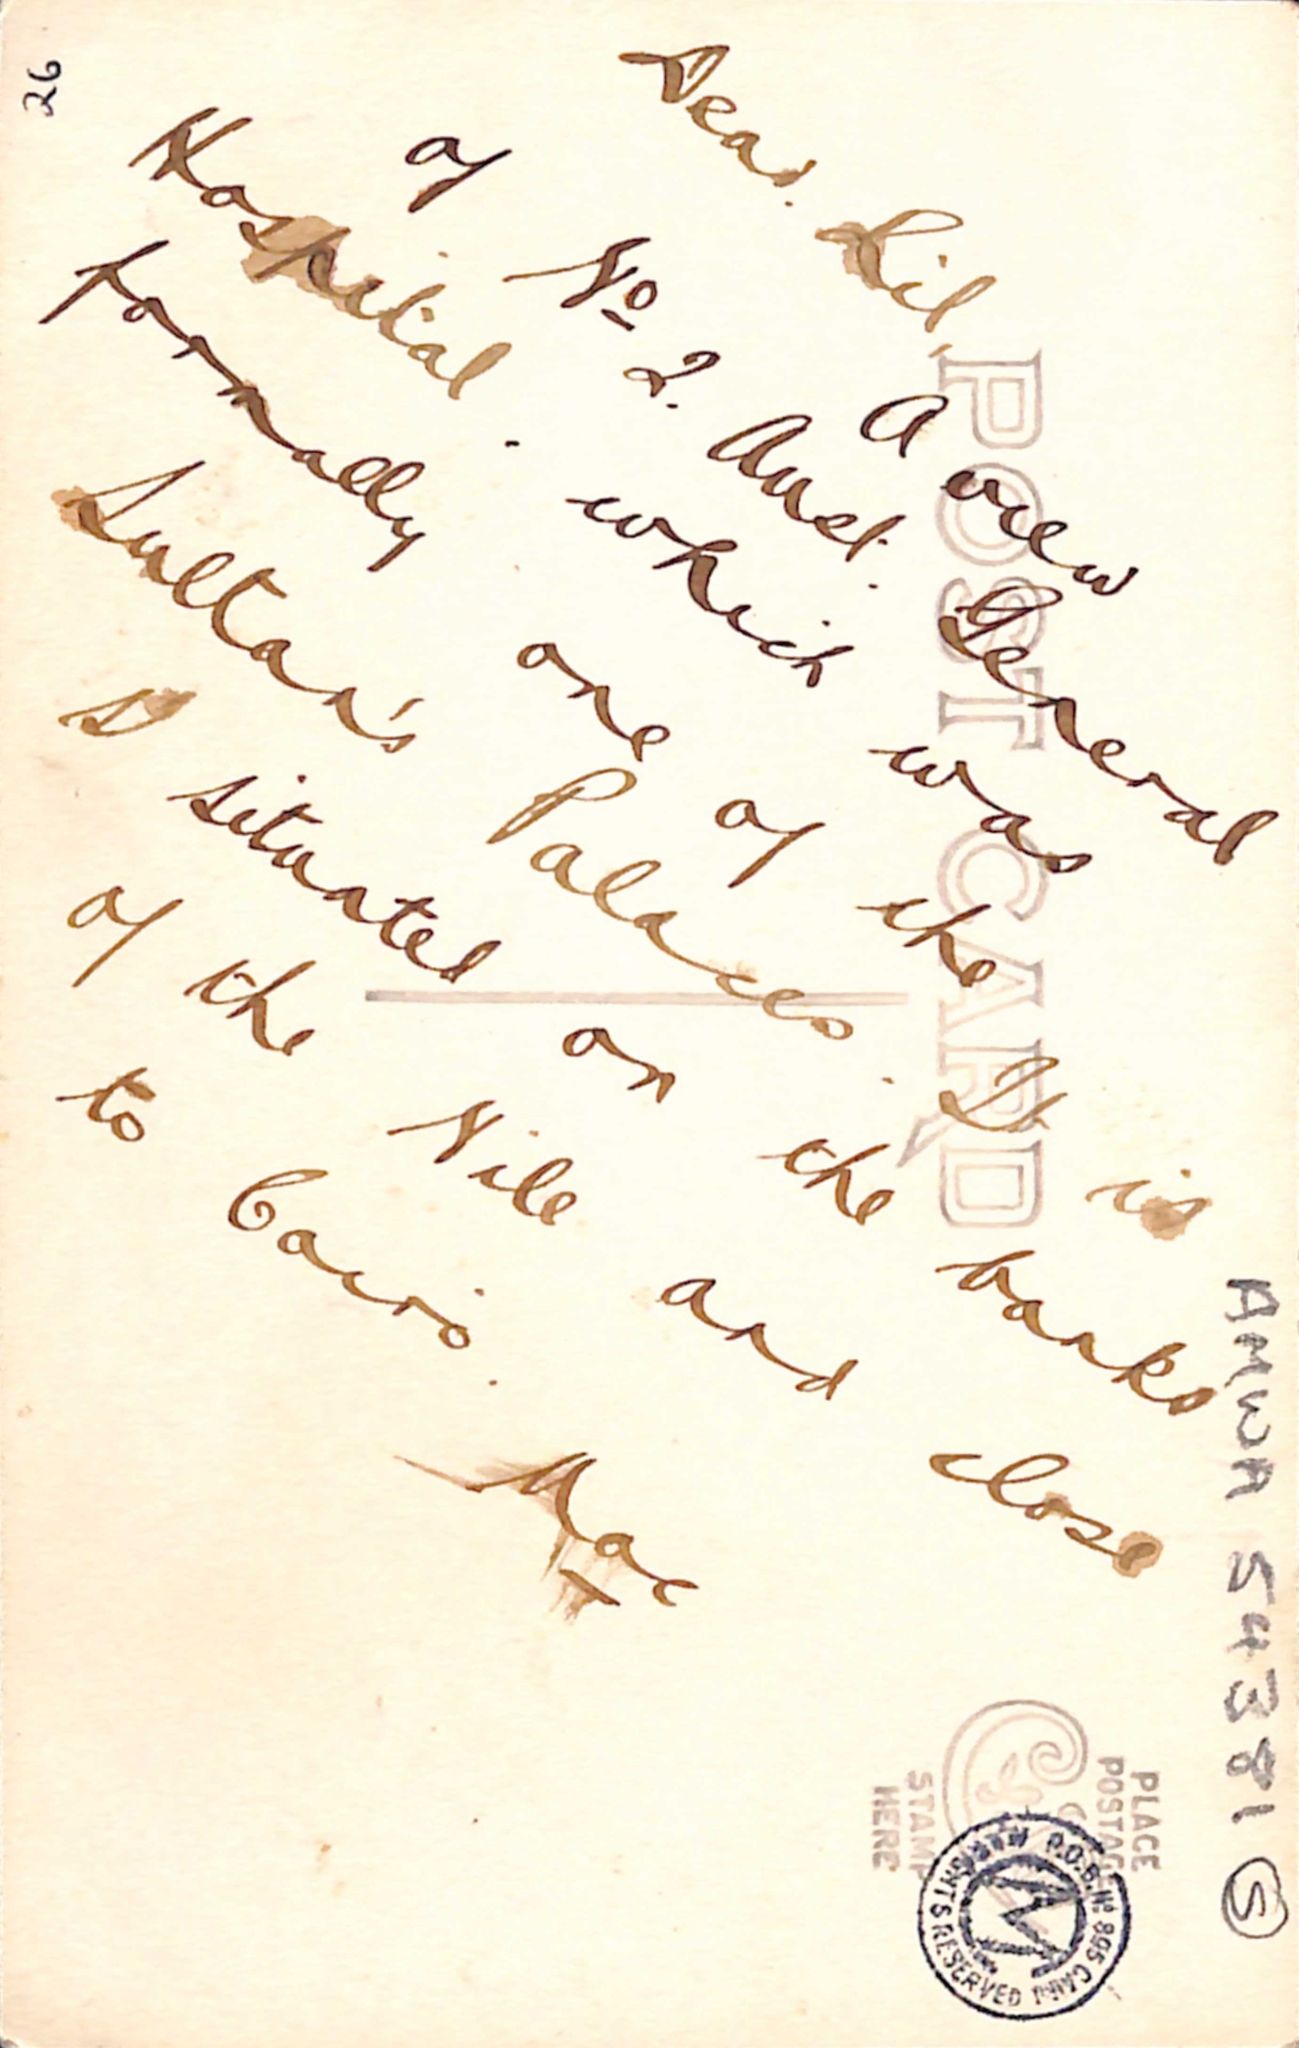 AMWA 54381 S
POST CARD
PLACE
POSTAGE
STAMP
HERE
P.O.B. Nº 895 CAIRO
RIGHTS RESERVED
Dear Lil, A view
of No 2. Aust. General
Hospital. which was
Formally one of the
Sultan's Palaces. It is
situated on the banks
of the Nile and close
to Cairo.
Mac
26